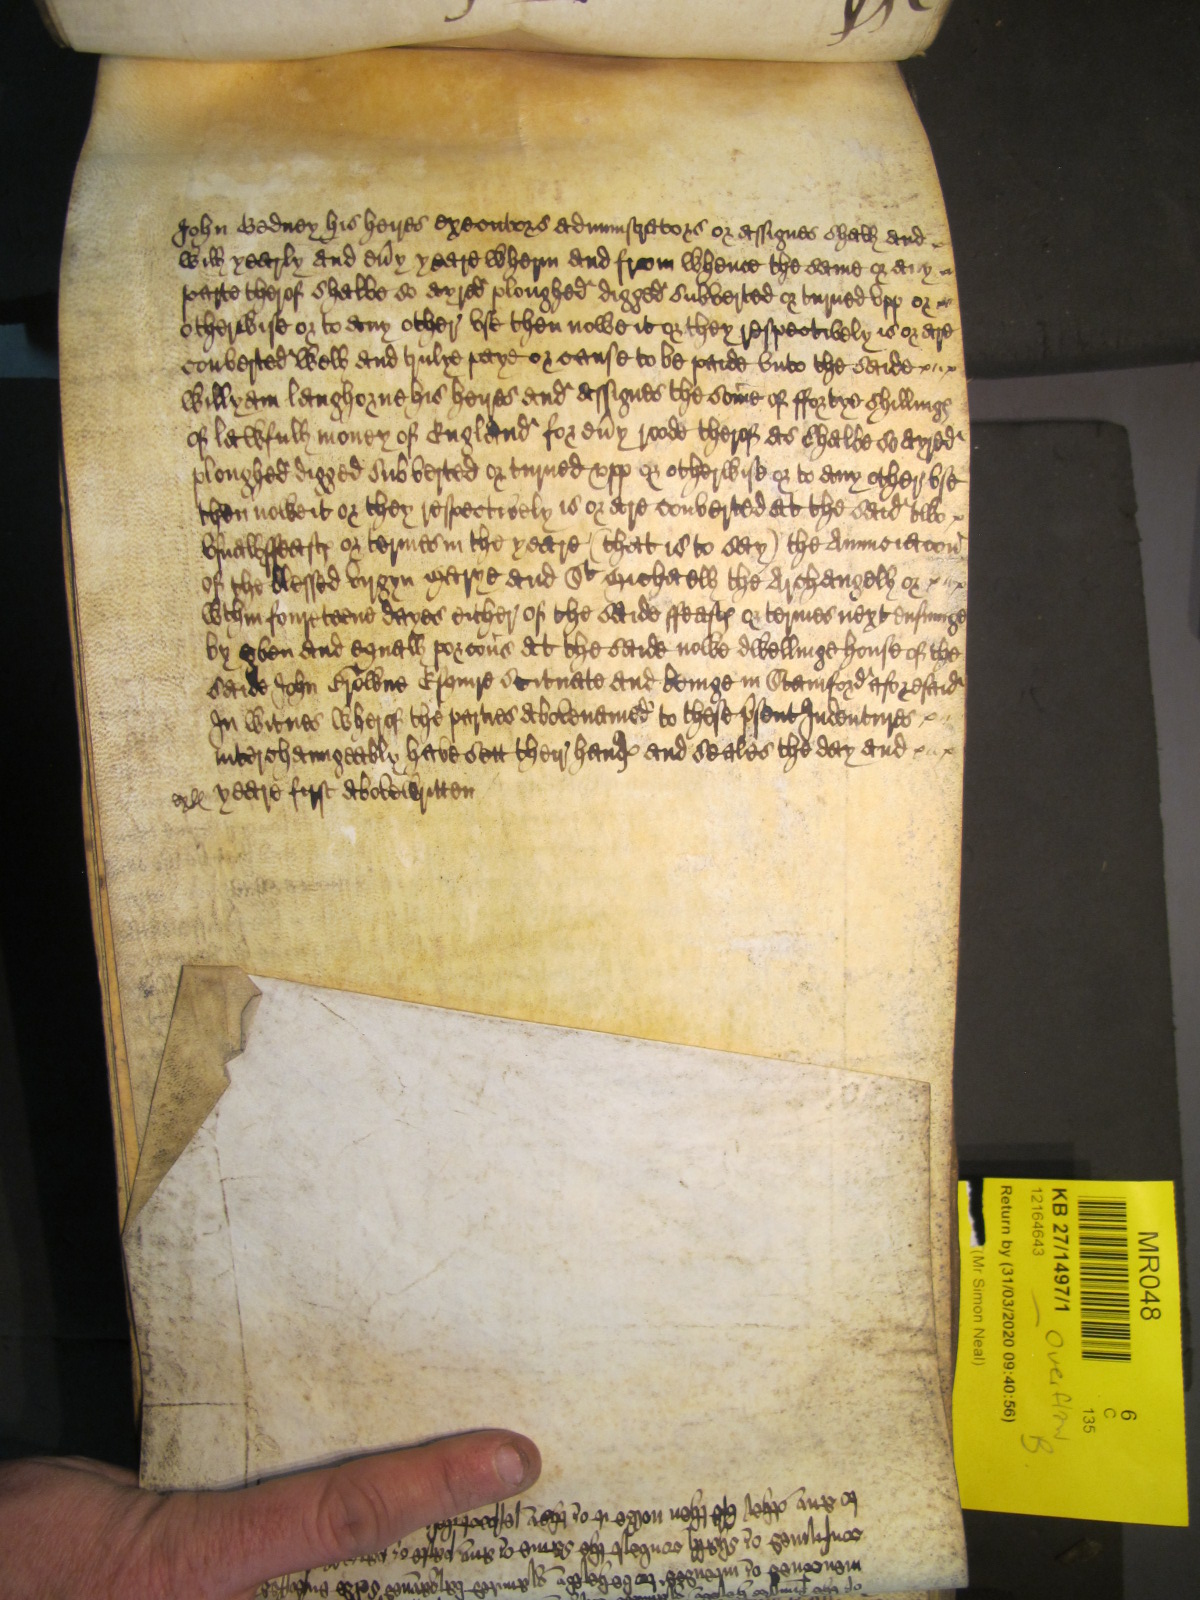 John Bedney his heires executors administrators or assignes shall and
will yearly and eūy yeare wherin and from whence the same or any
parte therof shalbe so ayred ploughed digged subverted or turned upp or
otherwise or to any other use then nowe it or they respectively is or are
converted well and trulye paye or cause to be paide unto the saide
Willyam Langhorne his heyres and assignes the some of ffortye shillings
of lawfull money of England for eūy roode therof as shalbe so ayred
ploughed digged subverted or turned upp or otherwise or to any other use
then nowe it or they respectively is or are converted at the said two
usuall ffeasts or termes in the yeare (that is to say) the Annuciacon
of the blessed virgyn Marye and St Michaell the Archangell or
wthin fourteene dayes either of the saide ffeasts or termes next ensuinge
by even and equall porcons at the saide nowe dwellinge house of the
saide John Browne Esquire scituate and beinge in Stamford aforesaid
In witnes wherof the parties abovenamed to these psent Indentures
interchaungeably have sett their hands and seales the day and
yeare first abovewritten
MR048
6
C
135
KB 27/1497/1
Overflow
B
12164643
Return by (31/03/2020 09:40:56)
(Mr Simon Neal)